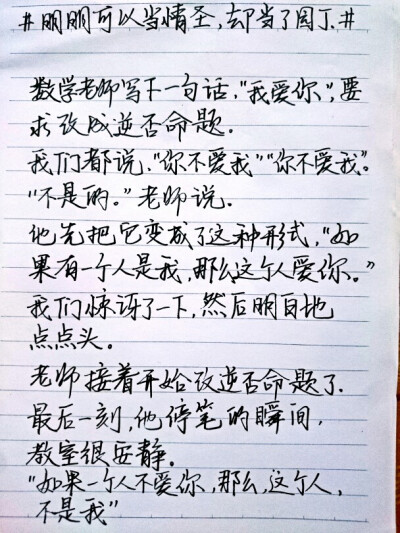 #明明可以当情圣,却当了园丁.#
数学老师写下一句话,“我爱你”,要
求改成逆否命题。
我们都说,“你不爱我”“你不爱我”。
“不是的。”老师说.
他先把它变成了这种形式,“如
果有一个人是我,那么这个人爱你。”
我们惊讶了一下,然后明白地
点点头。
老师接着开始改逆否命题了.
最后一刻,他停笔的瞬间,
教室很安静。
“如果一个人不爱你,那么,这个人,
不是我”